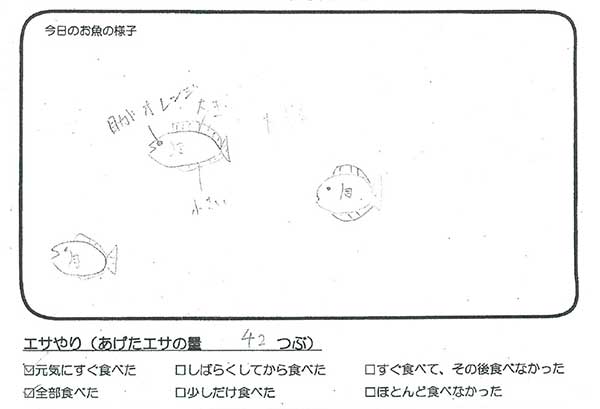 今日のお魚の様子
目がオレンジ
大きい
小さい
月
月
エサやり（あげたエサの量 42 つぶ）
☑元気にすぐ食べた □しばらくしてから食べた □すぐ食べて、その後食べなかった
☑全部食べた □少しだけ食べた □ほとんど食べなかった